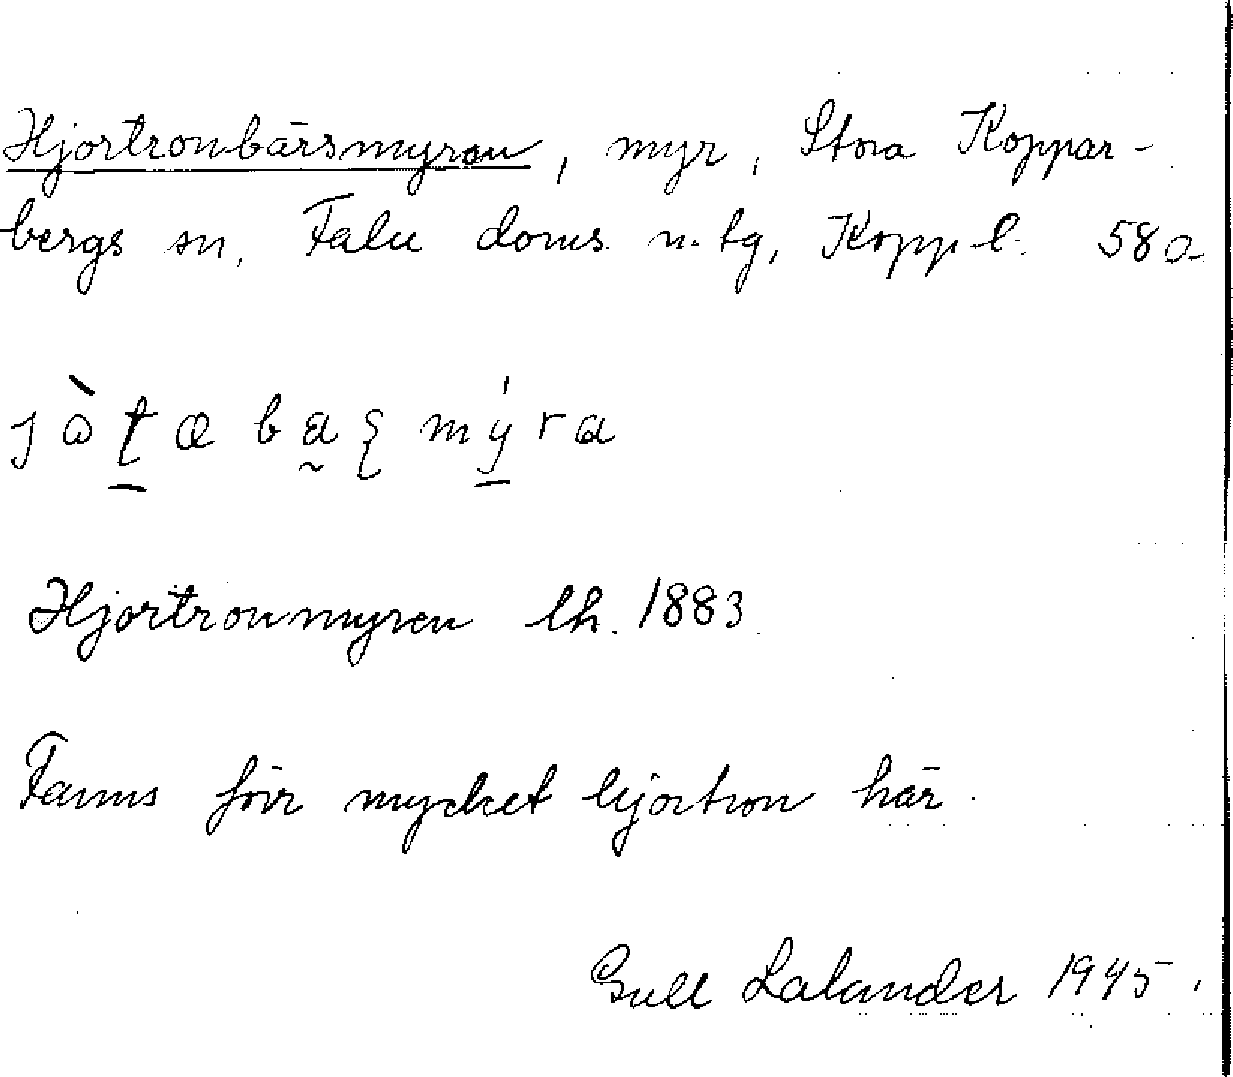 Hjortronbärsmyran, myr, Stora Koppar-
bergs sn, Falu doms. n. tg, Kopp. l. 58 a
jòʈæbaʂmýra
Hjortronmyren lh. 1883
Fanns förr mycket hjortron här.
Gull Lalander 1945.